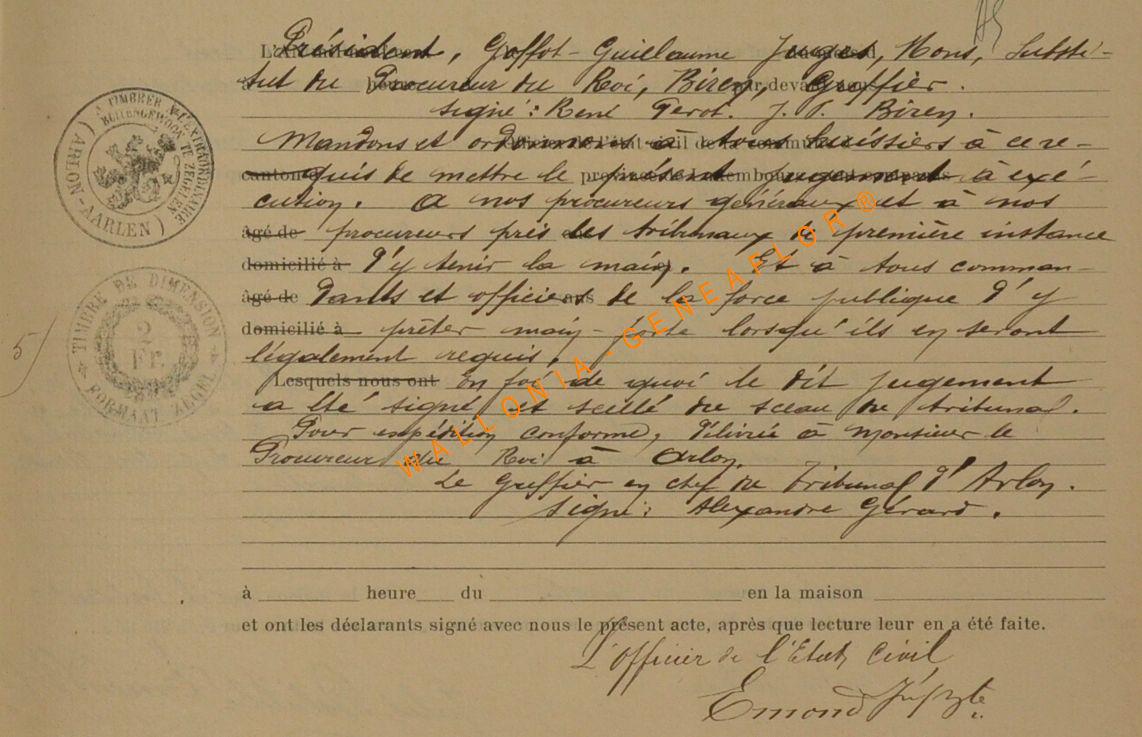 Président, Goffot-Guillaume Juges, Mons, Substi-
tut du Procureur du Roi, Biren, Greffier.
signé: René Perot. J. P. Biren.
Mandons et ordonnons à tous huissiers à ce re-
canton quis de mettre le présent jugement à exé-
cution. A nos procureurs généraux et à nos
âgé de procureurs près les tribunaux de première instance
domicilié à d'y tenir la main. Et à tous comman-
âgé de dants et officiers de la force publique d'y
domicilié à prêter main-forte lorsqu'ils en seront
légalement requis.
Lesquels nous ont En foi de quoi le dit jugement
a été signé et scellé du sceau du tribunal.
Pour expédition conforme, délivrée à Monsieur le
Procureur du Roi à Arlon.
Le Greffier en chef du Tribunal d'Arlon.
Signé: Alexandre Gérard.
à heure du en la maison
et ont les déclarants signé avec nous le présent acte, après que lecture leur en a été faite.
L'Officier de l'Etat Civil
Emond
A TIMBRER A L'EXTRAORDINAIRE
BUITENGEWOON TE ZEGELEN
(ARLON-AARLEN)
TIMBRE DE DIMENSION
2
Fr.
FORMAAT ZEGEL
5
WALLONIA-GENEAFLOR®